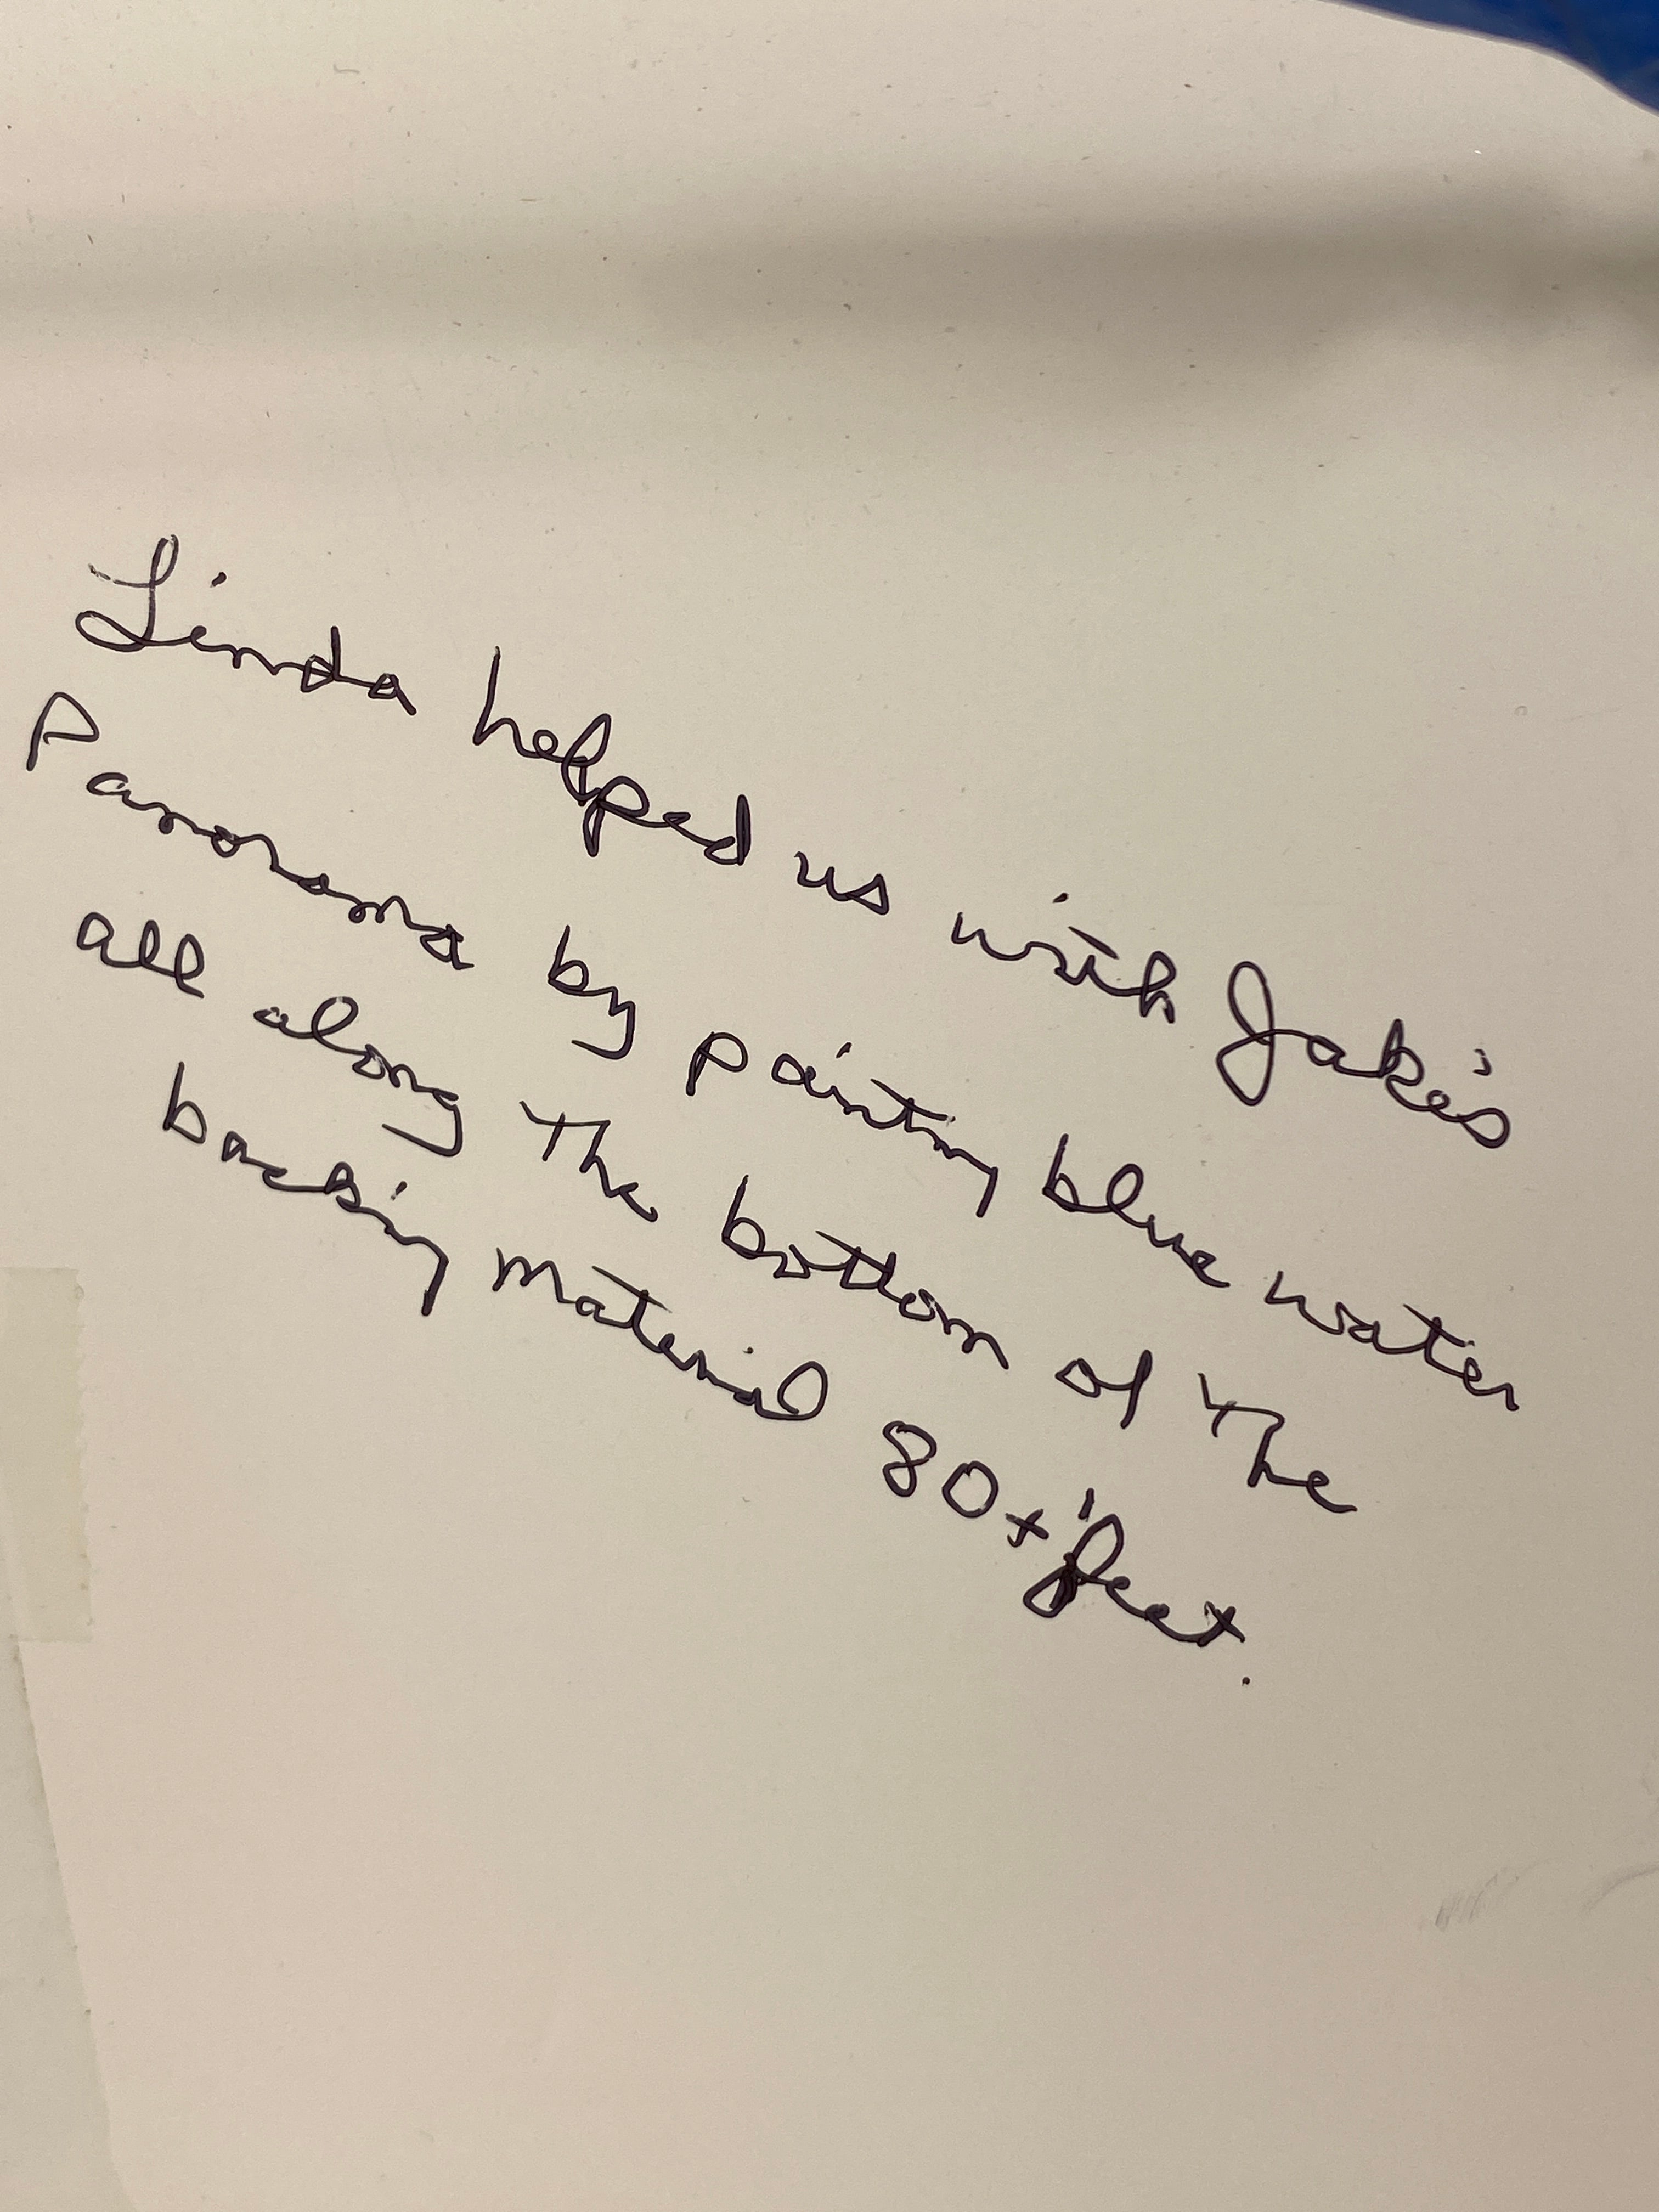 Linda helped us with Jake's
Panorama by painting blue water
all along The bottom of The
backing material 80+' feet.